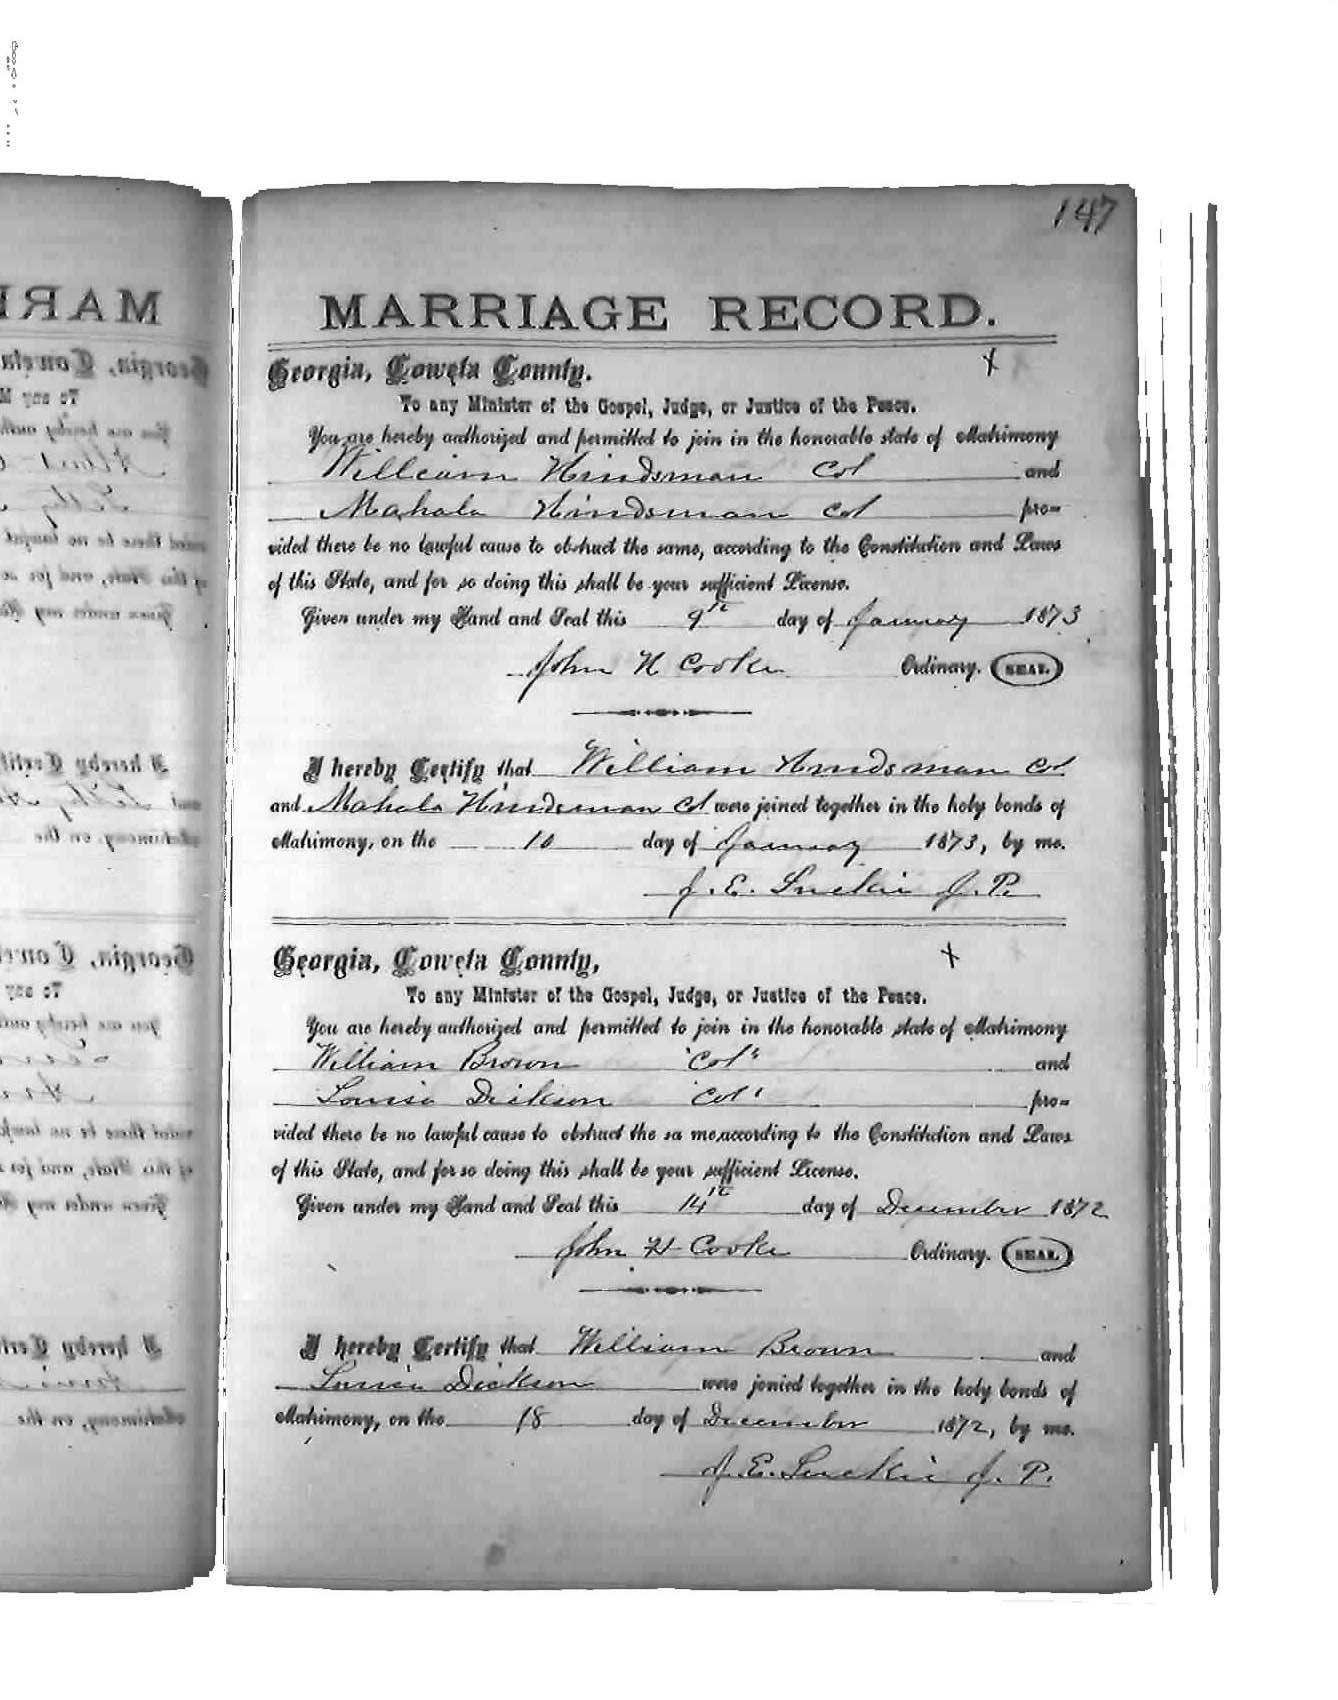 147
MARRIAGE RECORD.
Georgia, Coweta County.
To any Minister of the Gospel, Judge, or Justice of the Peace.
You are hereby authorized and permitted to join in the honorable state of Matrimony
William Hindsman Col and
Mahala Hindsman Col pro=
vided there be no lawful cause to obstruct the same, according to the Constitution and Laws
of this State, and for so doing this shall be your sufficient License.
Given under my Hand and Seal this 9th day of January 1873
John H Cooke Ordinary. SEAL.
I hereby Certify that William Hindsman Col
and Mahala Hindsman Col were joined together in the holy bonds of
Matrimony, on the 10 day of January 1873, by me.
J. E. Luckie J. P.
Georgia, Coweta County,
To any Minister of the Gospel, Judge, or Justice of the Peace.
You are hereby authorized and permitted to join in the honorable state of Matrimony
William Brown "Col" and
Louisa Dickson "Col" pro=
vided there be no lawful cause to obstruct the sa me,according to the Constitution and Laws
of this State, and for so doing this shall be your sufficient License.
Given under my Hand and Seal this 14th day of December 1872
John H Cooke Ordinary. SEAL.
I hereby Certify that William Brown and
Louisa Dickson were jonied together in the holy bonds of
Matrimony, on the 18 day of December 1872, by me.
J. E. Luckie J. P.